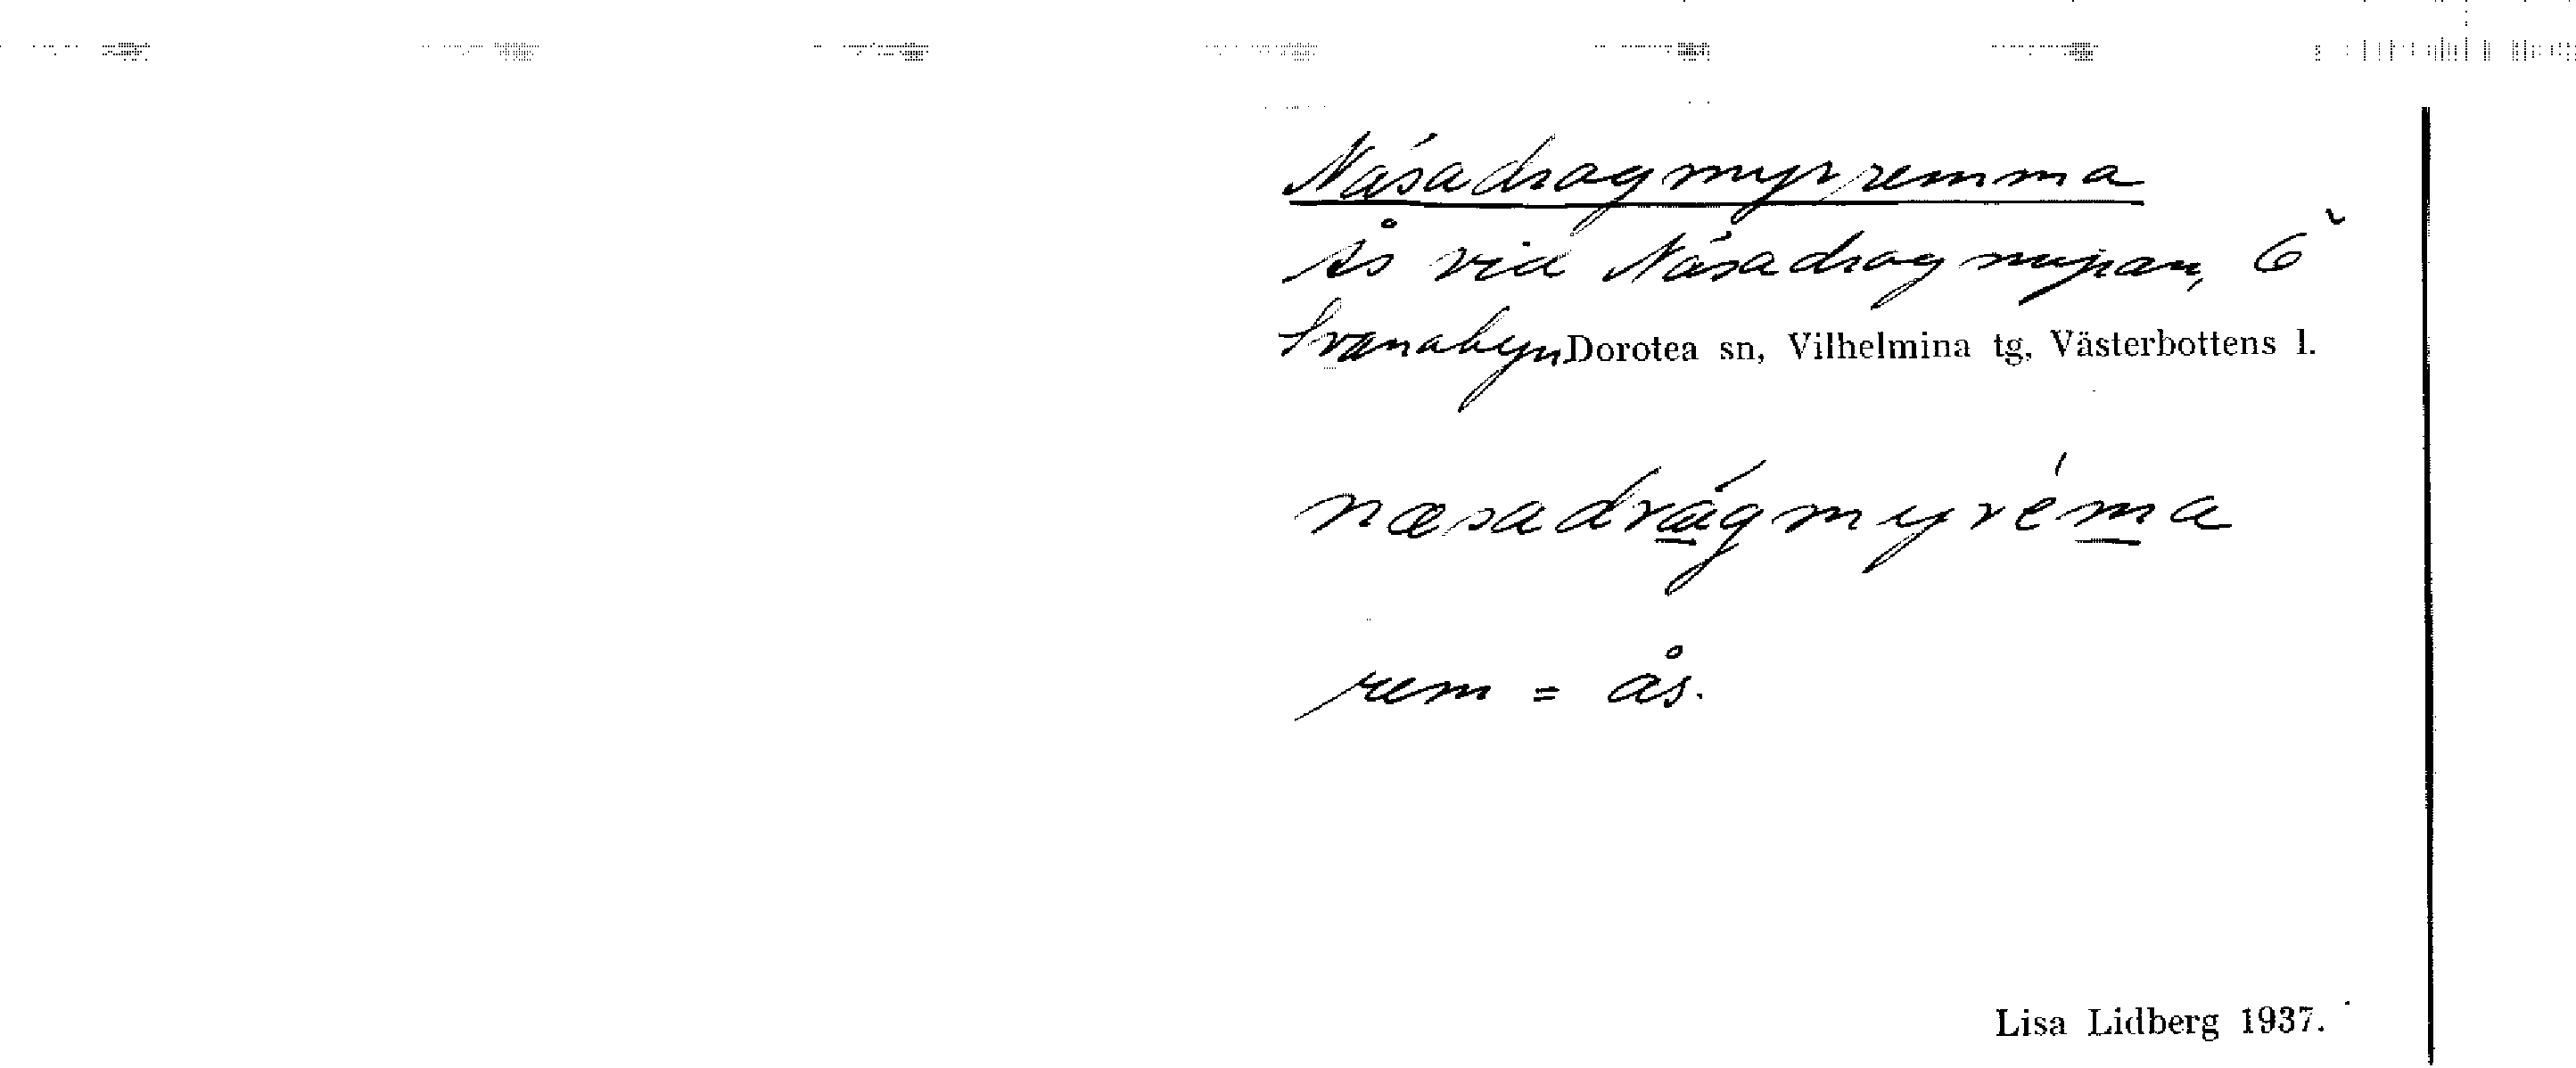 Näsadragmyrremma
ås vid Näsadragmyran, Ö
Svanabyn Dorotea sn, Vilhelmina tg, Västerbottens l.
næsadrágmyréma
rem = ås.
Lisa Lidberg 1937.